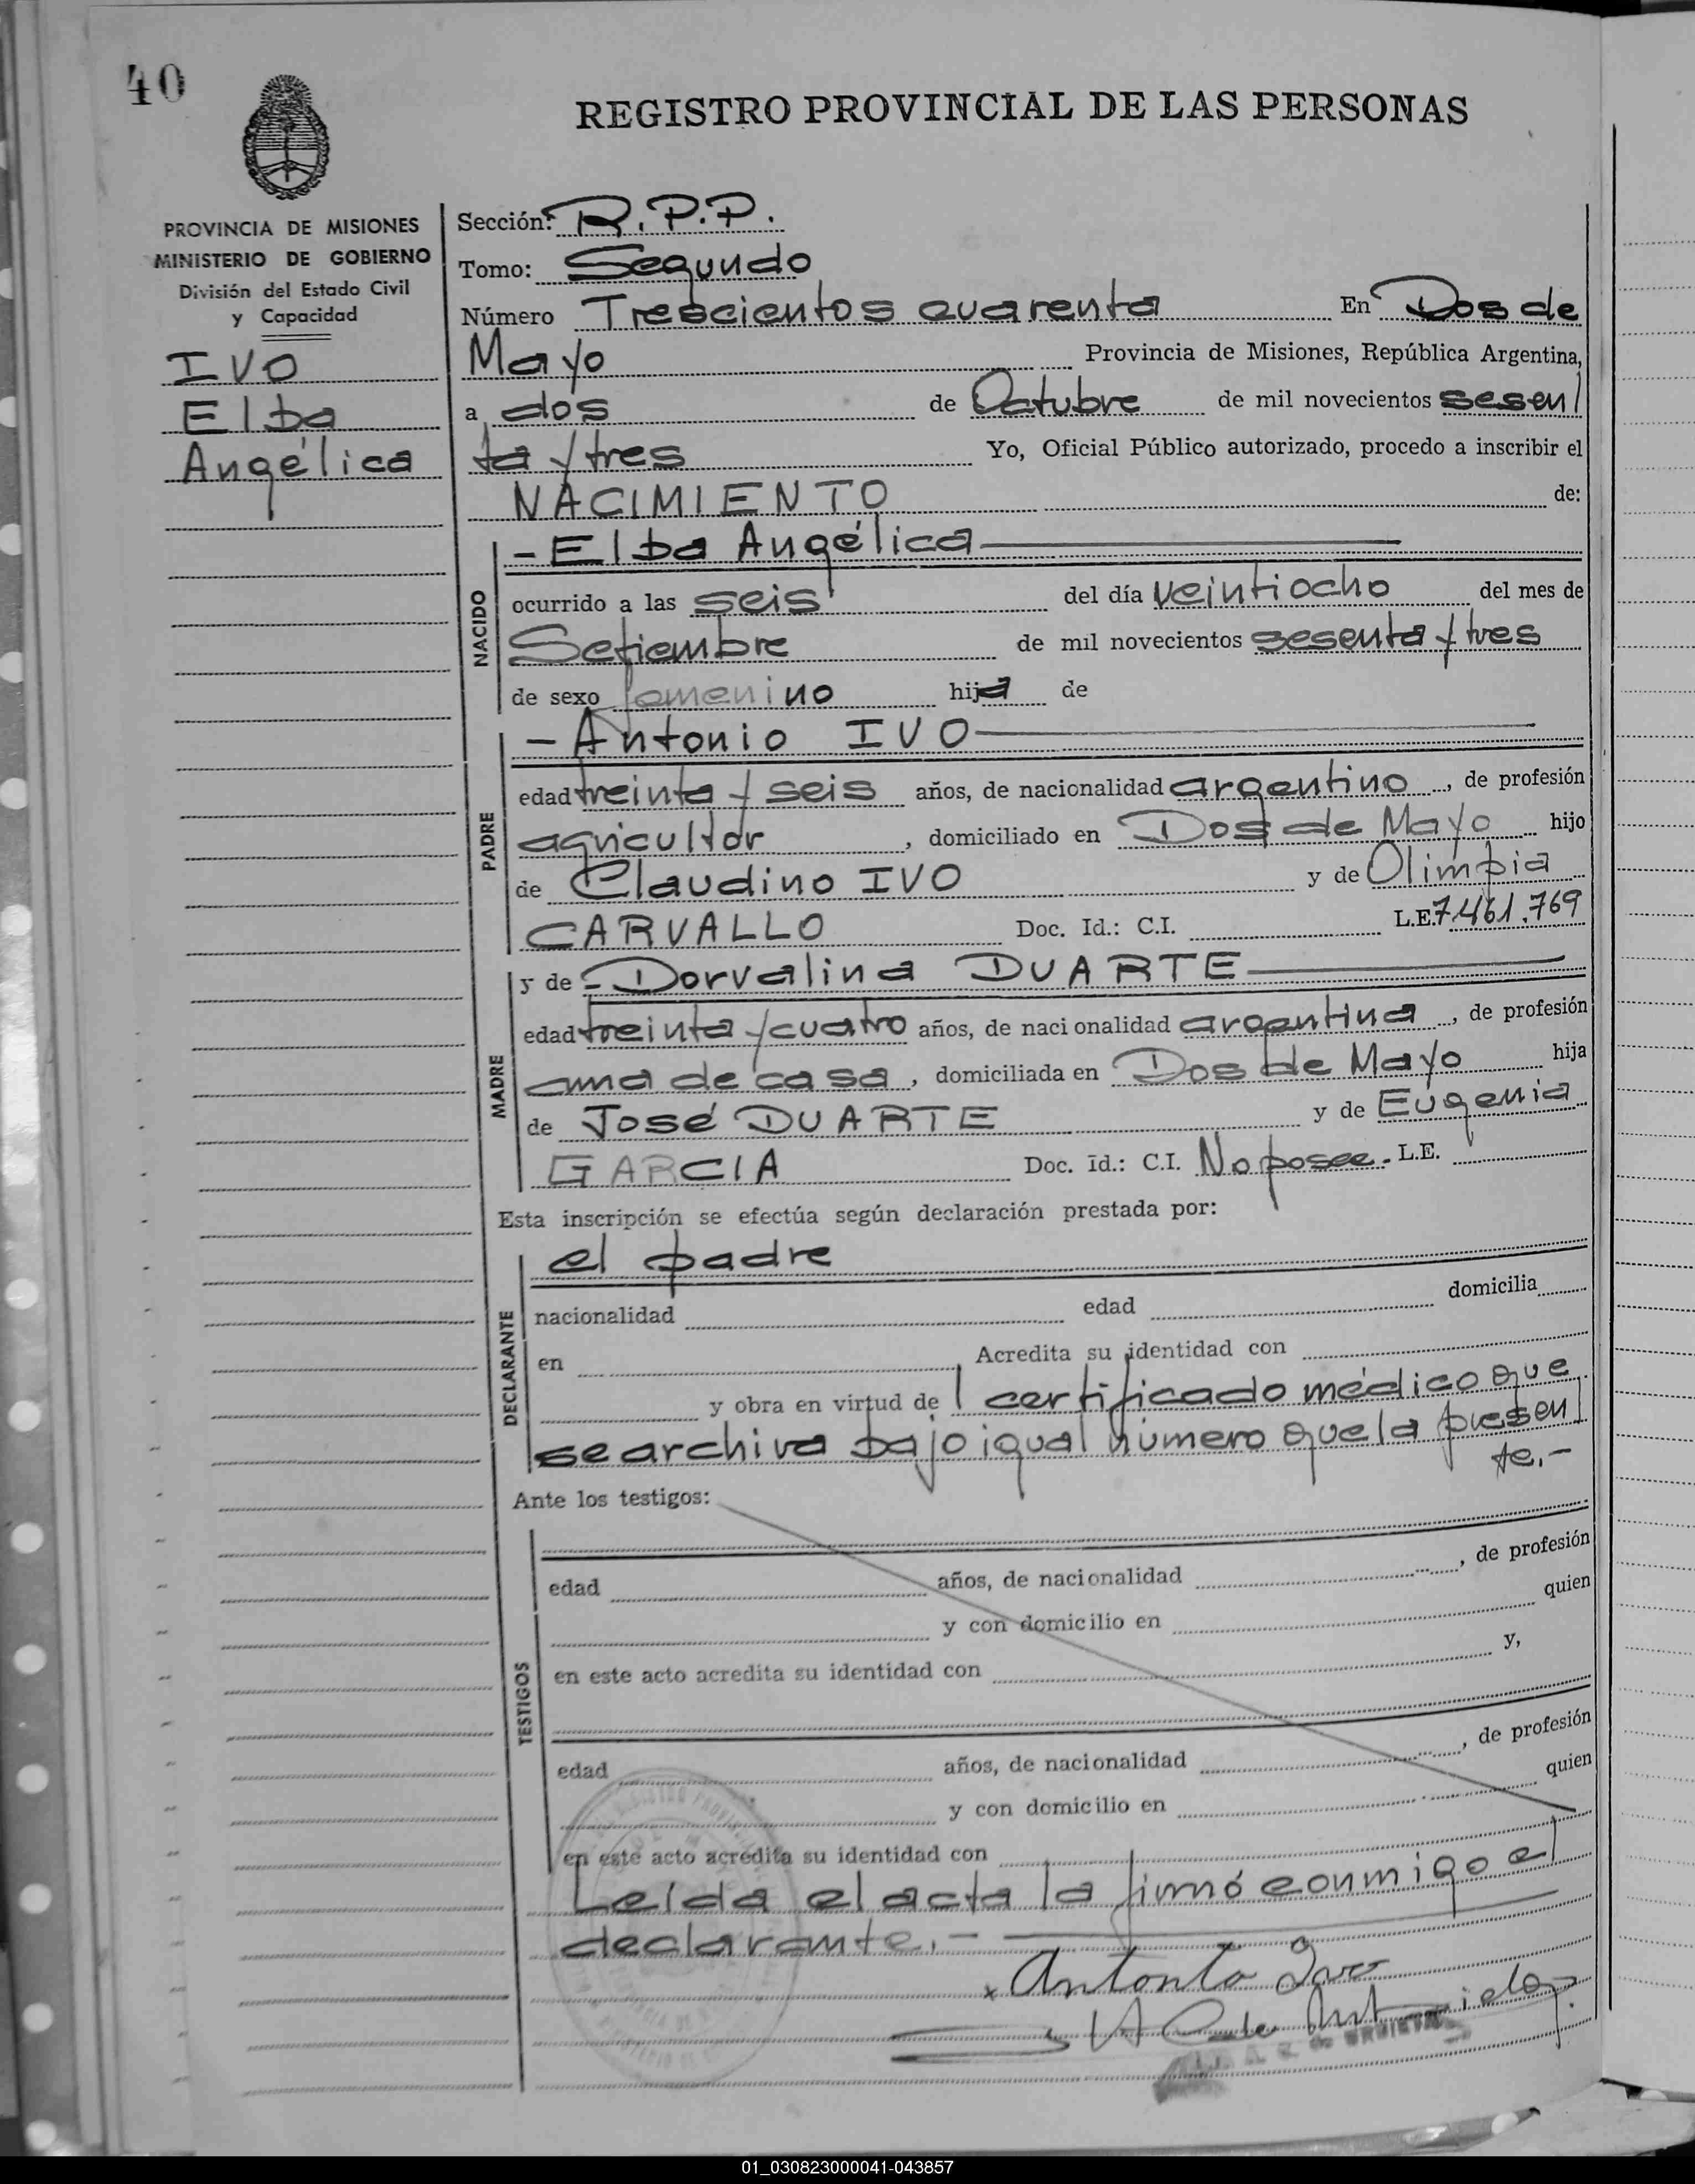 40
REGISTRO PROVINCIAL DE LAS PERSONAS
PROVINCIA DE MISIONES
MINISTERIO DE GOBIERNO
División del Estado Civil
y Capacidad
IVO
Elba
Angélica
Sección: R.P.P.
Tomo: Segundo
Número Trescientos cuarenta En Dos de
Mayo Provincia de Misiones, República Argentina,
a dos de Octubre de mil novecientos sesen
ta y tres Yo, Oficial Público autorizado, procedo a inscribir el
NACIMIENTO de:
- Elba Angélica
NACIDO
ocurrido a las seis del día veintiocho del mes de
Setiembre de mil novecientos sesenta y tres
de sexo femenino hija de
- Antonio IVO
PADRE
edad treinta y seis años, de nacionalidad argentino, de profesión
agricultor, domiciliado en Dos de Mayo hijo
de Claudino IVO y de Olimpia
CARVALLO Doc. Id.: C.I. L.E. 7.461.769
y de - Dorvalina DUARTE
MADRE
edad treinta y cuatro años, de nacionalidad argentina, de profesión
ama de casa, domiciliada en Dos de Mayo hija
de José DUARTE y de Eugenia
GARCIA Doc. Id.: C.I. No posee. L.E.
Esta inscripción se efectúa según declaración prestada por:
el padre
DECLARANTE
nacionalidad edad domicilia
en Acredita su identidad con
y obra en virtud de l certificado médico que
se archiva bajo igual número que la presen
te.-
Ante los testigos:
TESTIGOS
edad años, de nacionalidad , de profesión
y con domicilio en quien
en este acto acredita su identidad con y,
edad años, de nacionalidad , de profesión
y con domicilio en quien
en este acto acredita su identidad con
Leída el acta la firmó conmigo el
declarante.-
x Antonio Ivo
01_030823000041-043857